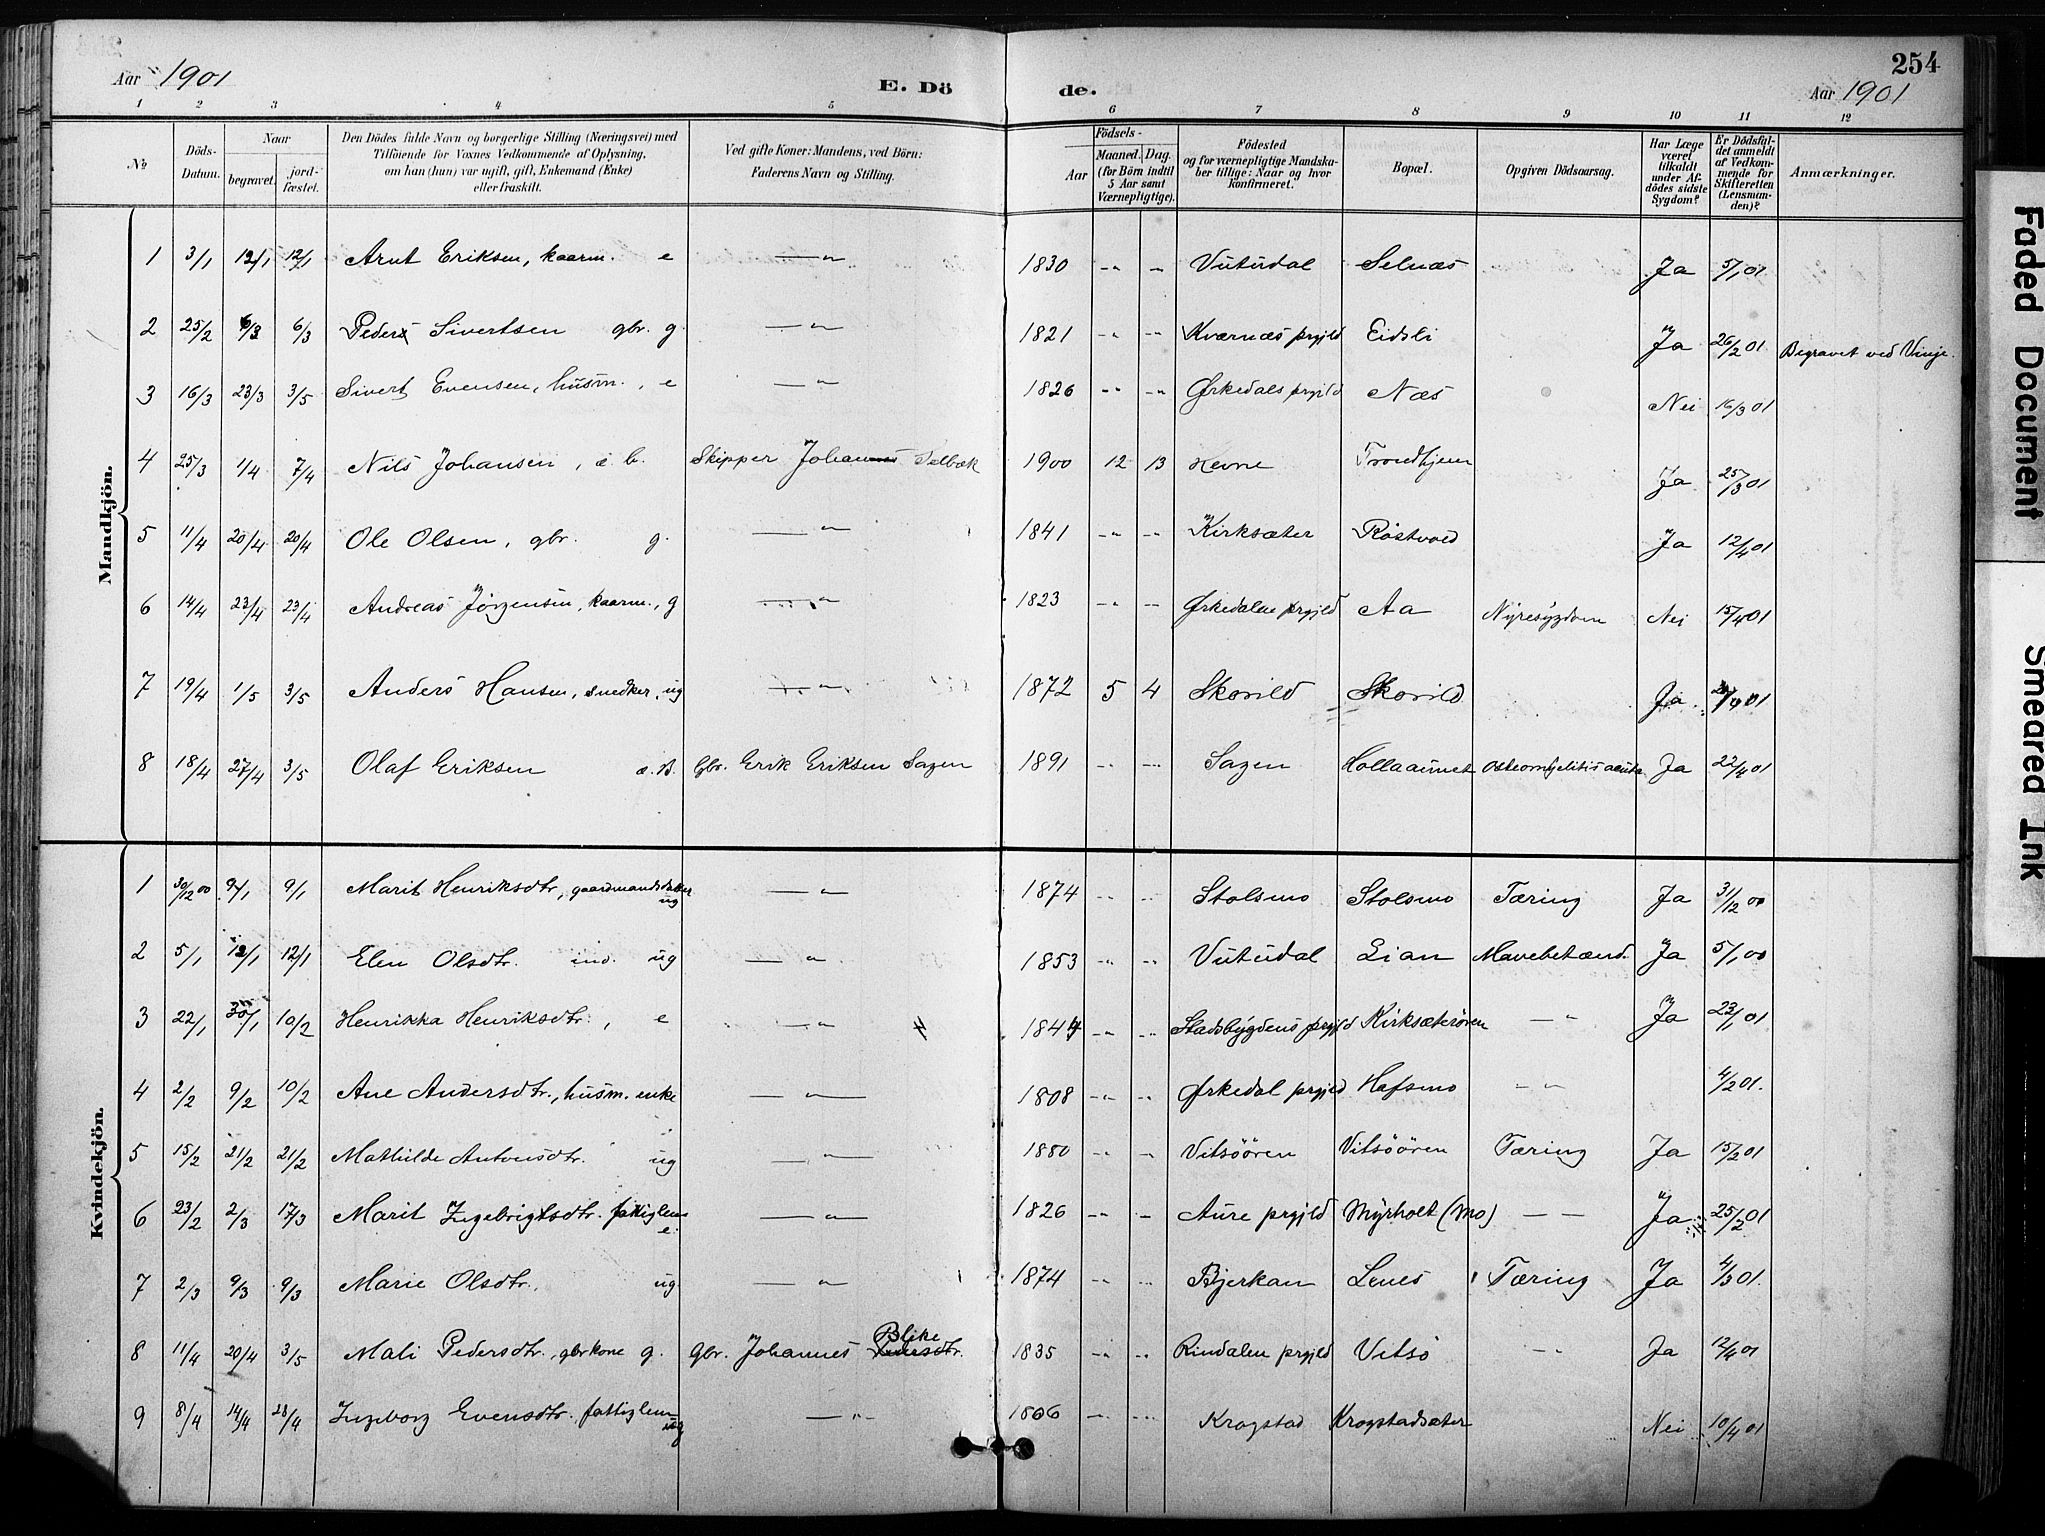 254
Aar 1901 E. Dö de. Aar 1901
1 2 3 4 5 6 7 8 9 10 11 12
№
Döds-Datum.
Naar
begravet.
jord-fæstet.
Den Dödes fulde Navn og borgerlige Stilling (Næringsvei) med
Tilföiende for Voxnes Vedkommende af Oplysning,
om han (hun) var ugift, gift, Enkemand (Enke)
eller fraskilt.
Ved gifte Koner: Mandens, ved Börn:
Faderens Navn og Stilling.
Födsels-
Aar
Maaned. Dag.
(for Börn indtil
5 Aar samt
Værnepligtige).
Födested
og for værnepligtige Mandska-
ber tillige: Naar og hvor
konfirmeret.
Bopæl.
Opgiven Dödsaarsag.
Har Læge
været
tilkaldt
under Af-
dödes sidste
Sygdom?
Er Dödsfal-
det anmeldt
af Vedkom-
mende for
Skifteretten
(Lensman-
den)?
Anmærkninger.
Mandkjön.
1 3/1 12/1 12/1 Arnt Eriksen, kaarm. e — " — 1830 -"- -"- Vutudal Selnæs Ja 5/1 01
2 25/2 6/3 6/3 Peder Sivertsen gbr. g. — " — 1821 -"- -"- Kværnæs prgjld Eidsli Ja 26/2 01 Begravet ved Vinje.
3 16/3 23/3 3/5 Sivert Evensen, husm., e — " — 1826 -"- -"- Ørkedals prgjld Næs Nei 16/3 01
4 25/3 1/4 7/4 Nils Johansen, æ. b. Skipper Johannes Selbæk 1900 12 13 Hevne Trondhjem Ja 25/3 01
5 11/4 20/4 20/4 Ole Olsen, gbr. g. — " — 1841 -"- -"- Kirksæter Röstvold Ja 12/4 01
6 14/4 23/4 23/4 Andreas Jørgensen, kaarm., g — " — 1823 -"- -"- Ørkedalen prgjld Aa Nyresygdom Nei 15/4 01
7 19/4 1/5 3/5 Anders Hansen, snedker, ug — " — 1872 5 4 Skorild Skorild Ja /4 01
8 18/4 27/4 3/5 Olaf Eriksen æ. B. Gbr. Erik Eriksen Sagen 1891 -"- -"- Sagen Hollaaunet Osteomyelitis acuta Ja 22/4 01
Kvindekjön.
1 30/12 00 9/1 9/1 Marit Henriksdtr, gaardmandsdatter ug — " — 1874 -"- -"- Stolsmo Stolsmo Tæring Ja 31/12 00
2 5/1 12/1 12/1 Elen Olsdtr. ind. ug — " — 1853 -"- -"- Vutudal Lian Mavebetænd. Ja 5/1 00
3 22/1 30/1 10/2 Henrikka Henriksdtr, e — " — 1844 -"- -"- Stadsbygdens prgjld Kirksæterören — " Ja 23/1 01
4 2/2 9/2 10/2 Ane Andersdtr., husm. enke — " — 1808 -"- -"- Ørkedal prgjld Hafsmo — " 4/2 01.
5 15/2 21/2 21/2 Mathilde Antonsdtr. ug — " — 1880 -"- -"- Vitsöören Vitsöören Tæring Ja 15/2 01
6 23/2 2/3 17/3 Marit Ingebrigtsdtr. fattiglem e. — " — 1826 -"- - Aure prgjld Myrholt (Mo) — — Ja 25/2 01
7 2/3 9/3 9/3 Marie Olsdtr. ug — " — 1874 -"- -"- Bjerkan Lenes Tæring Ja 4/3 01.
8 11/4 20/4 3/5 Mali Pedersdtr., gbrkone g. gbr. Johannes Blike 1835 -"- -"- Rindalen prgjld Vitsö — " Ja 12/4 01
9 8/4 14/4 28/4 Ingeborg Evensdtr., fattiglem ug — " — 1806 -"- -"- Krogstad Krogstadsæter Nei 10/4 01
Faded Document
Smeared Ink